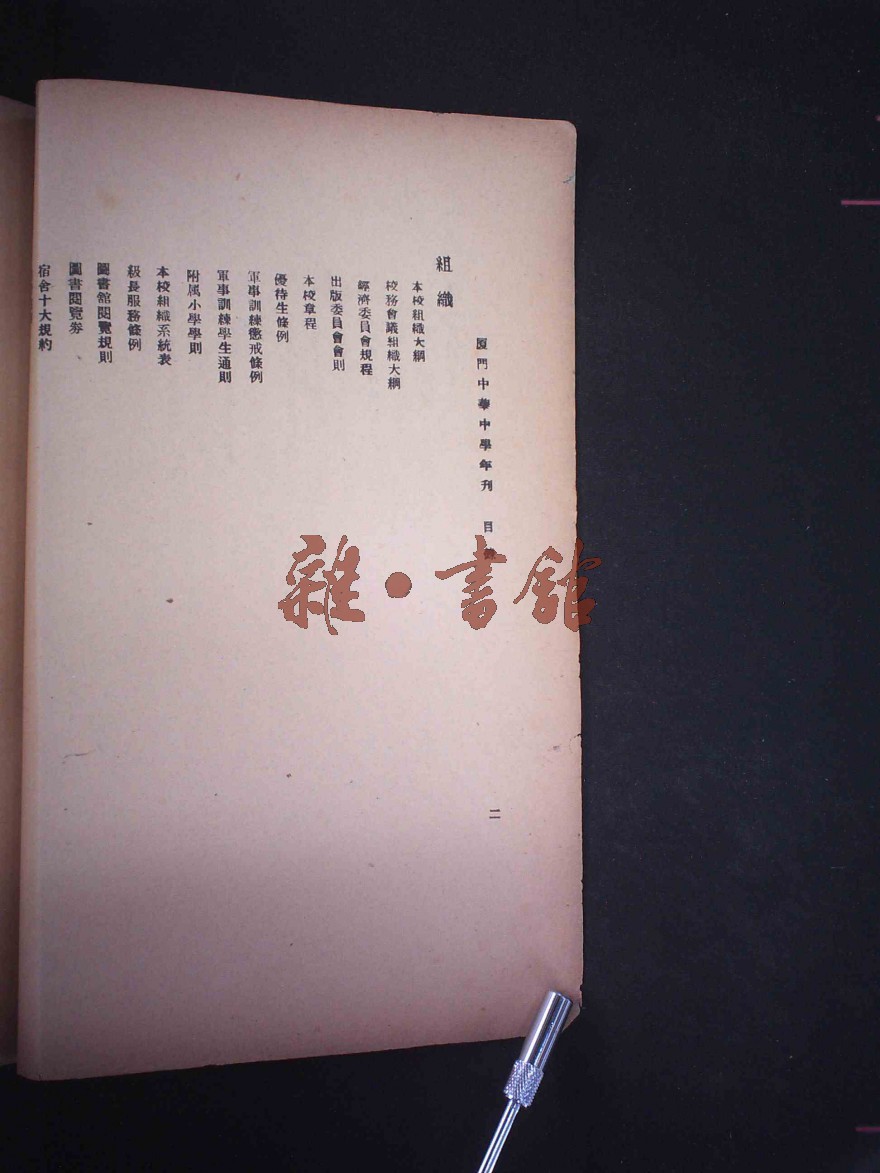 厦門中華中學年刊 目錄
二
組織
本校組織大綱
校務會議組織大綱
經濟委員會規程
出版委員會會則
本校章程
優待生條例
軍事訓練懲戒條例
軍事訓練學生通則
附属小學學則
本校組織系統表
級長服務條例
圖書舘閱覽規則
圖書閱覽券
宿舍十大規約
雜·書舘